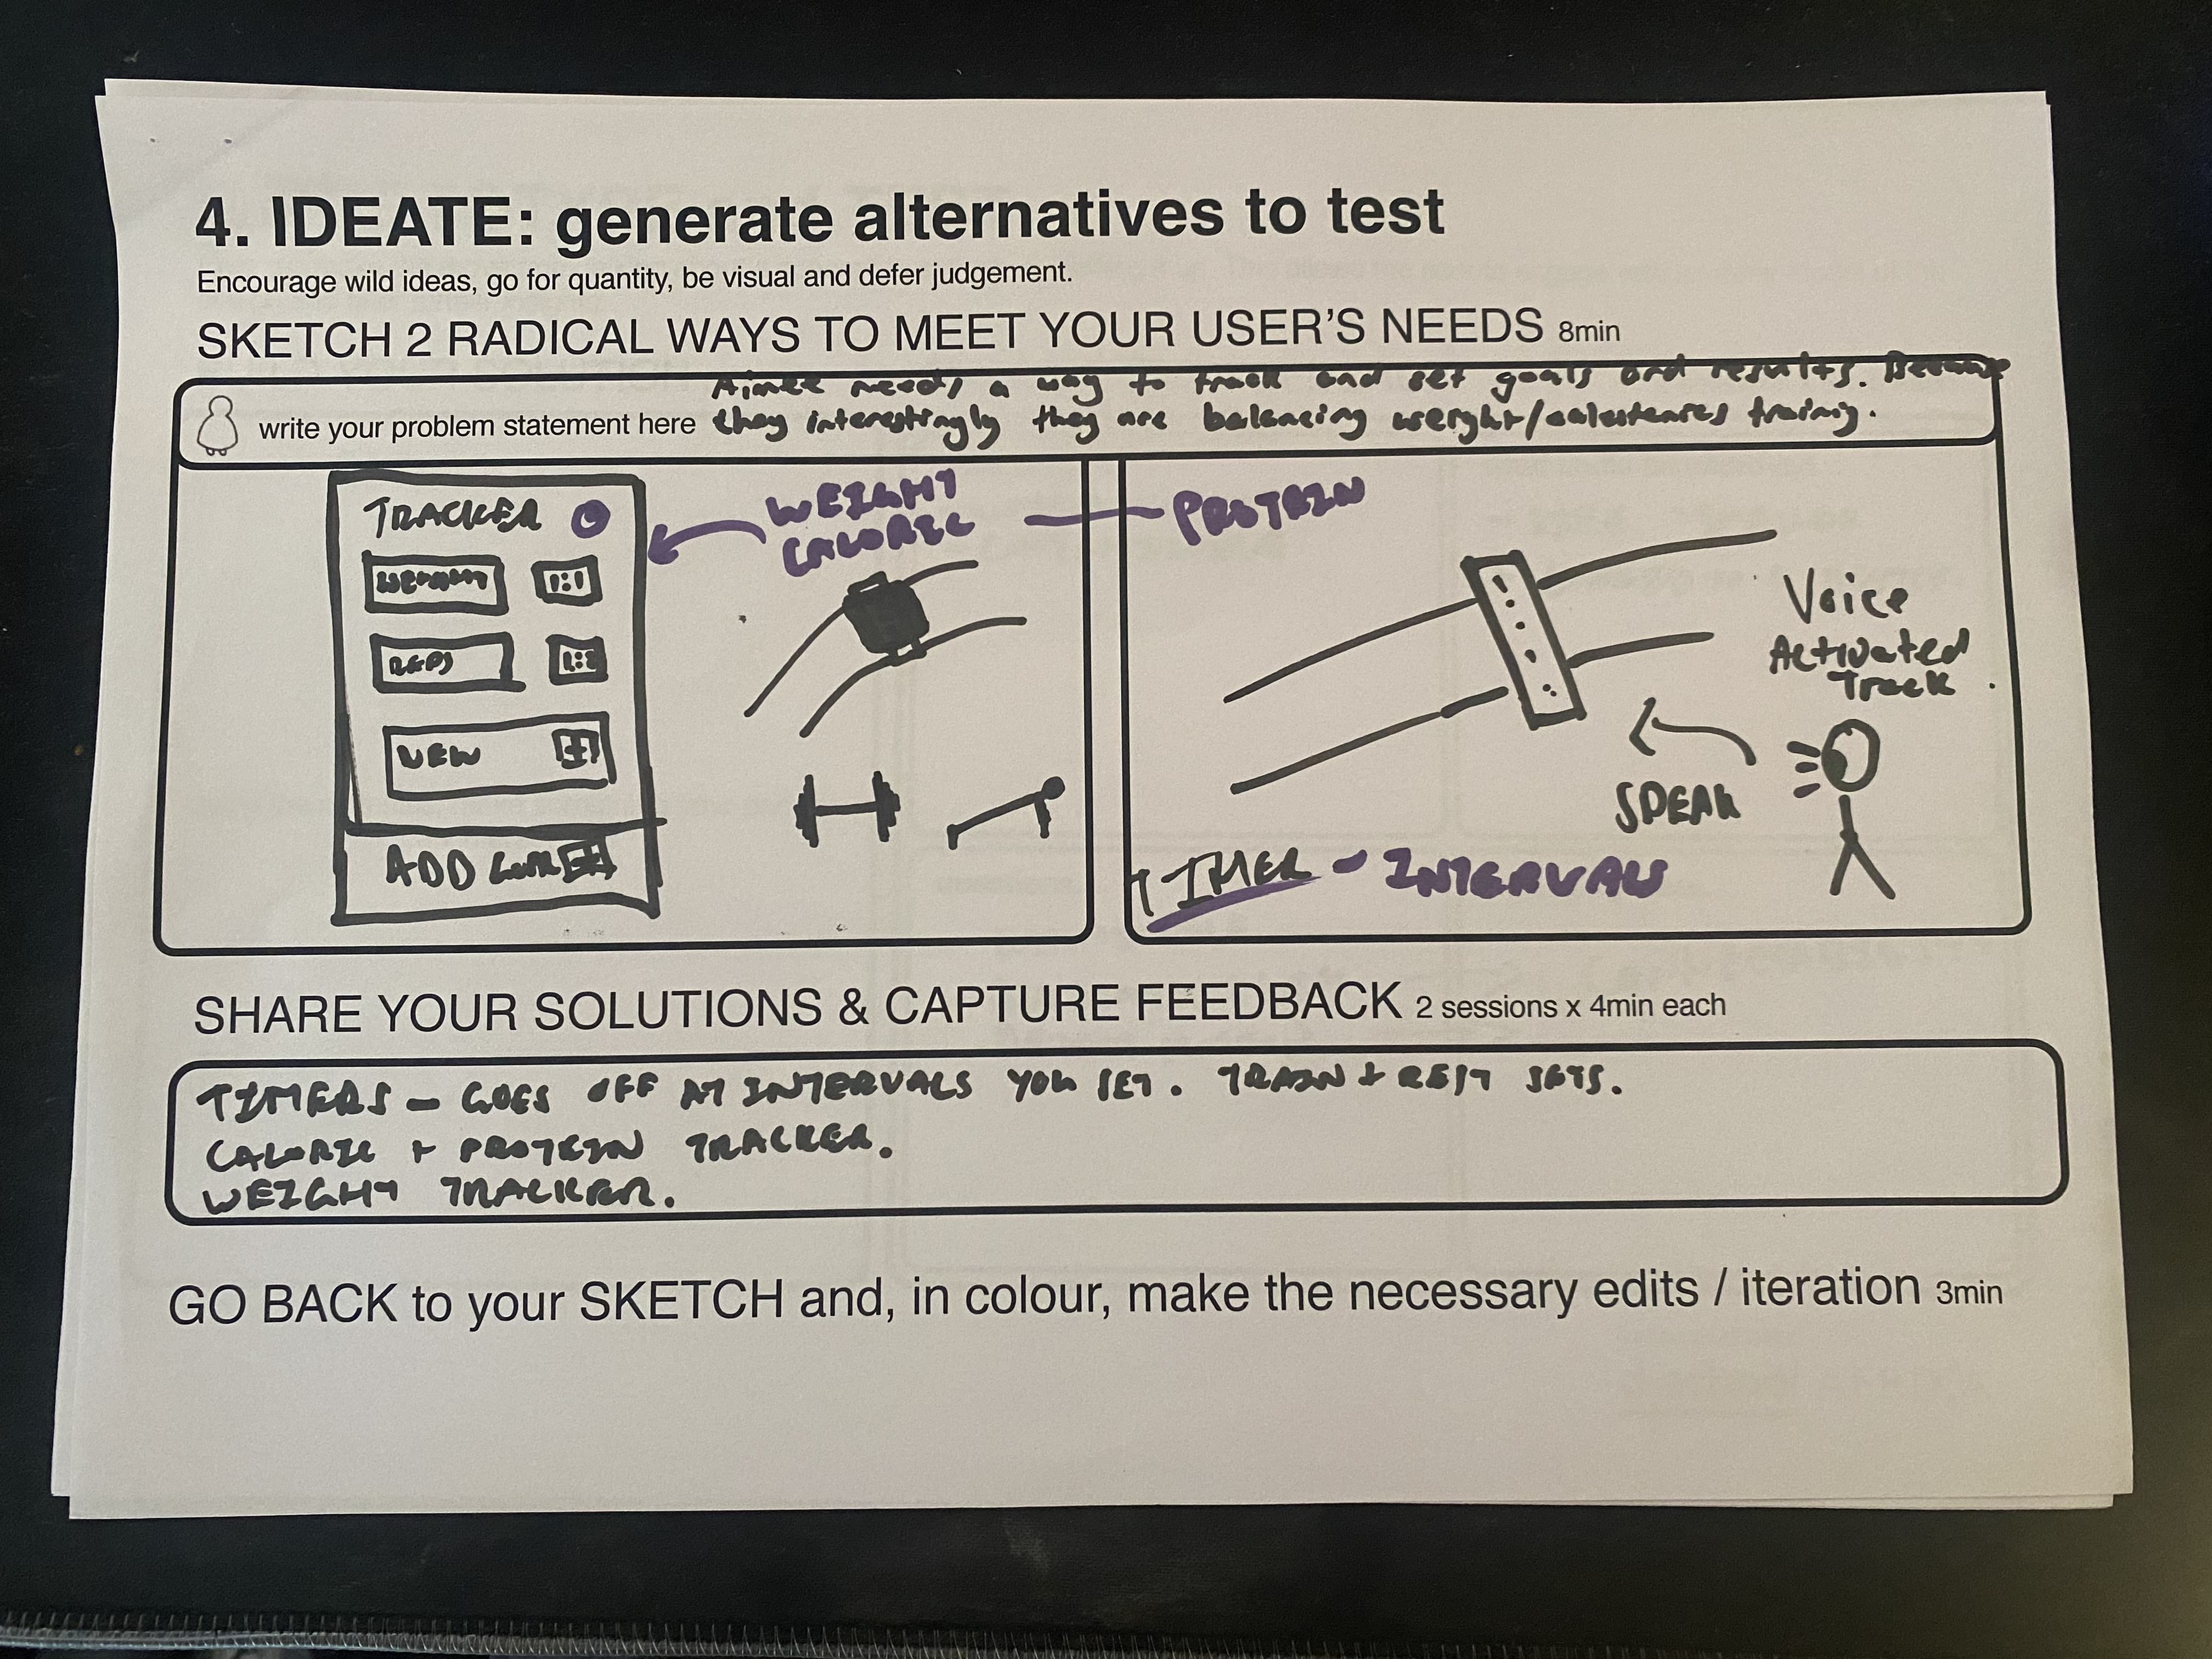 4. IDEATE: generate alternatives to test
Encourage wild ideas, go for quantity, be visual and defer judgement.
SKETCH 2 RADICAL WAYS TO MEET YOUR USER'S NEEDS 8min
Aimee needs a way to track and set goals and results. Because
write your problem statement here they interestingly they are balancing weight/calestenics training.
TRACKER
WEIGHT
CALORIE
PROTEIN
REPS
NEW +
ADD +
Voice
Activated
Track
SPEAK
TIMER - INTERVALS
SHARE YOUR SOLUTIONS & CAPTURE FEEDBACK 2 sessions x 4min each
TIMERS - GOES OFF AT INTERVALS YOU SET. TRAIN + REST SETS.
CALORIE + PROTEIN TRACKER.
WEIGHT TRACKER.
GO BACK to your SKETCH and, in colour, make the necessary edits / iteration 3min